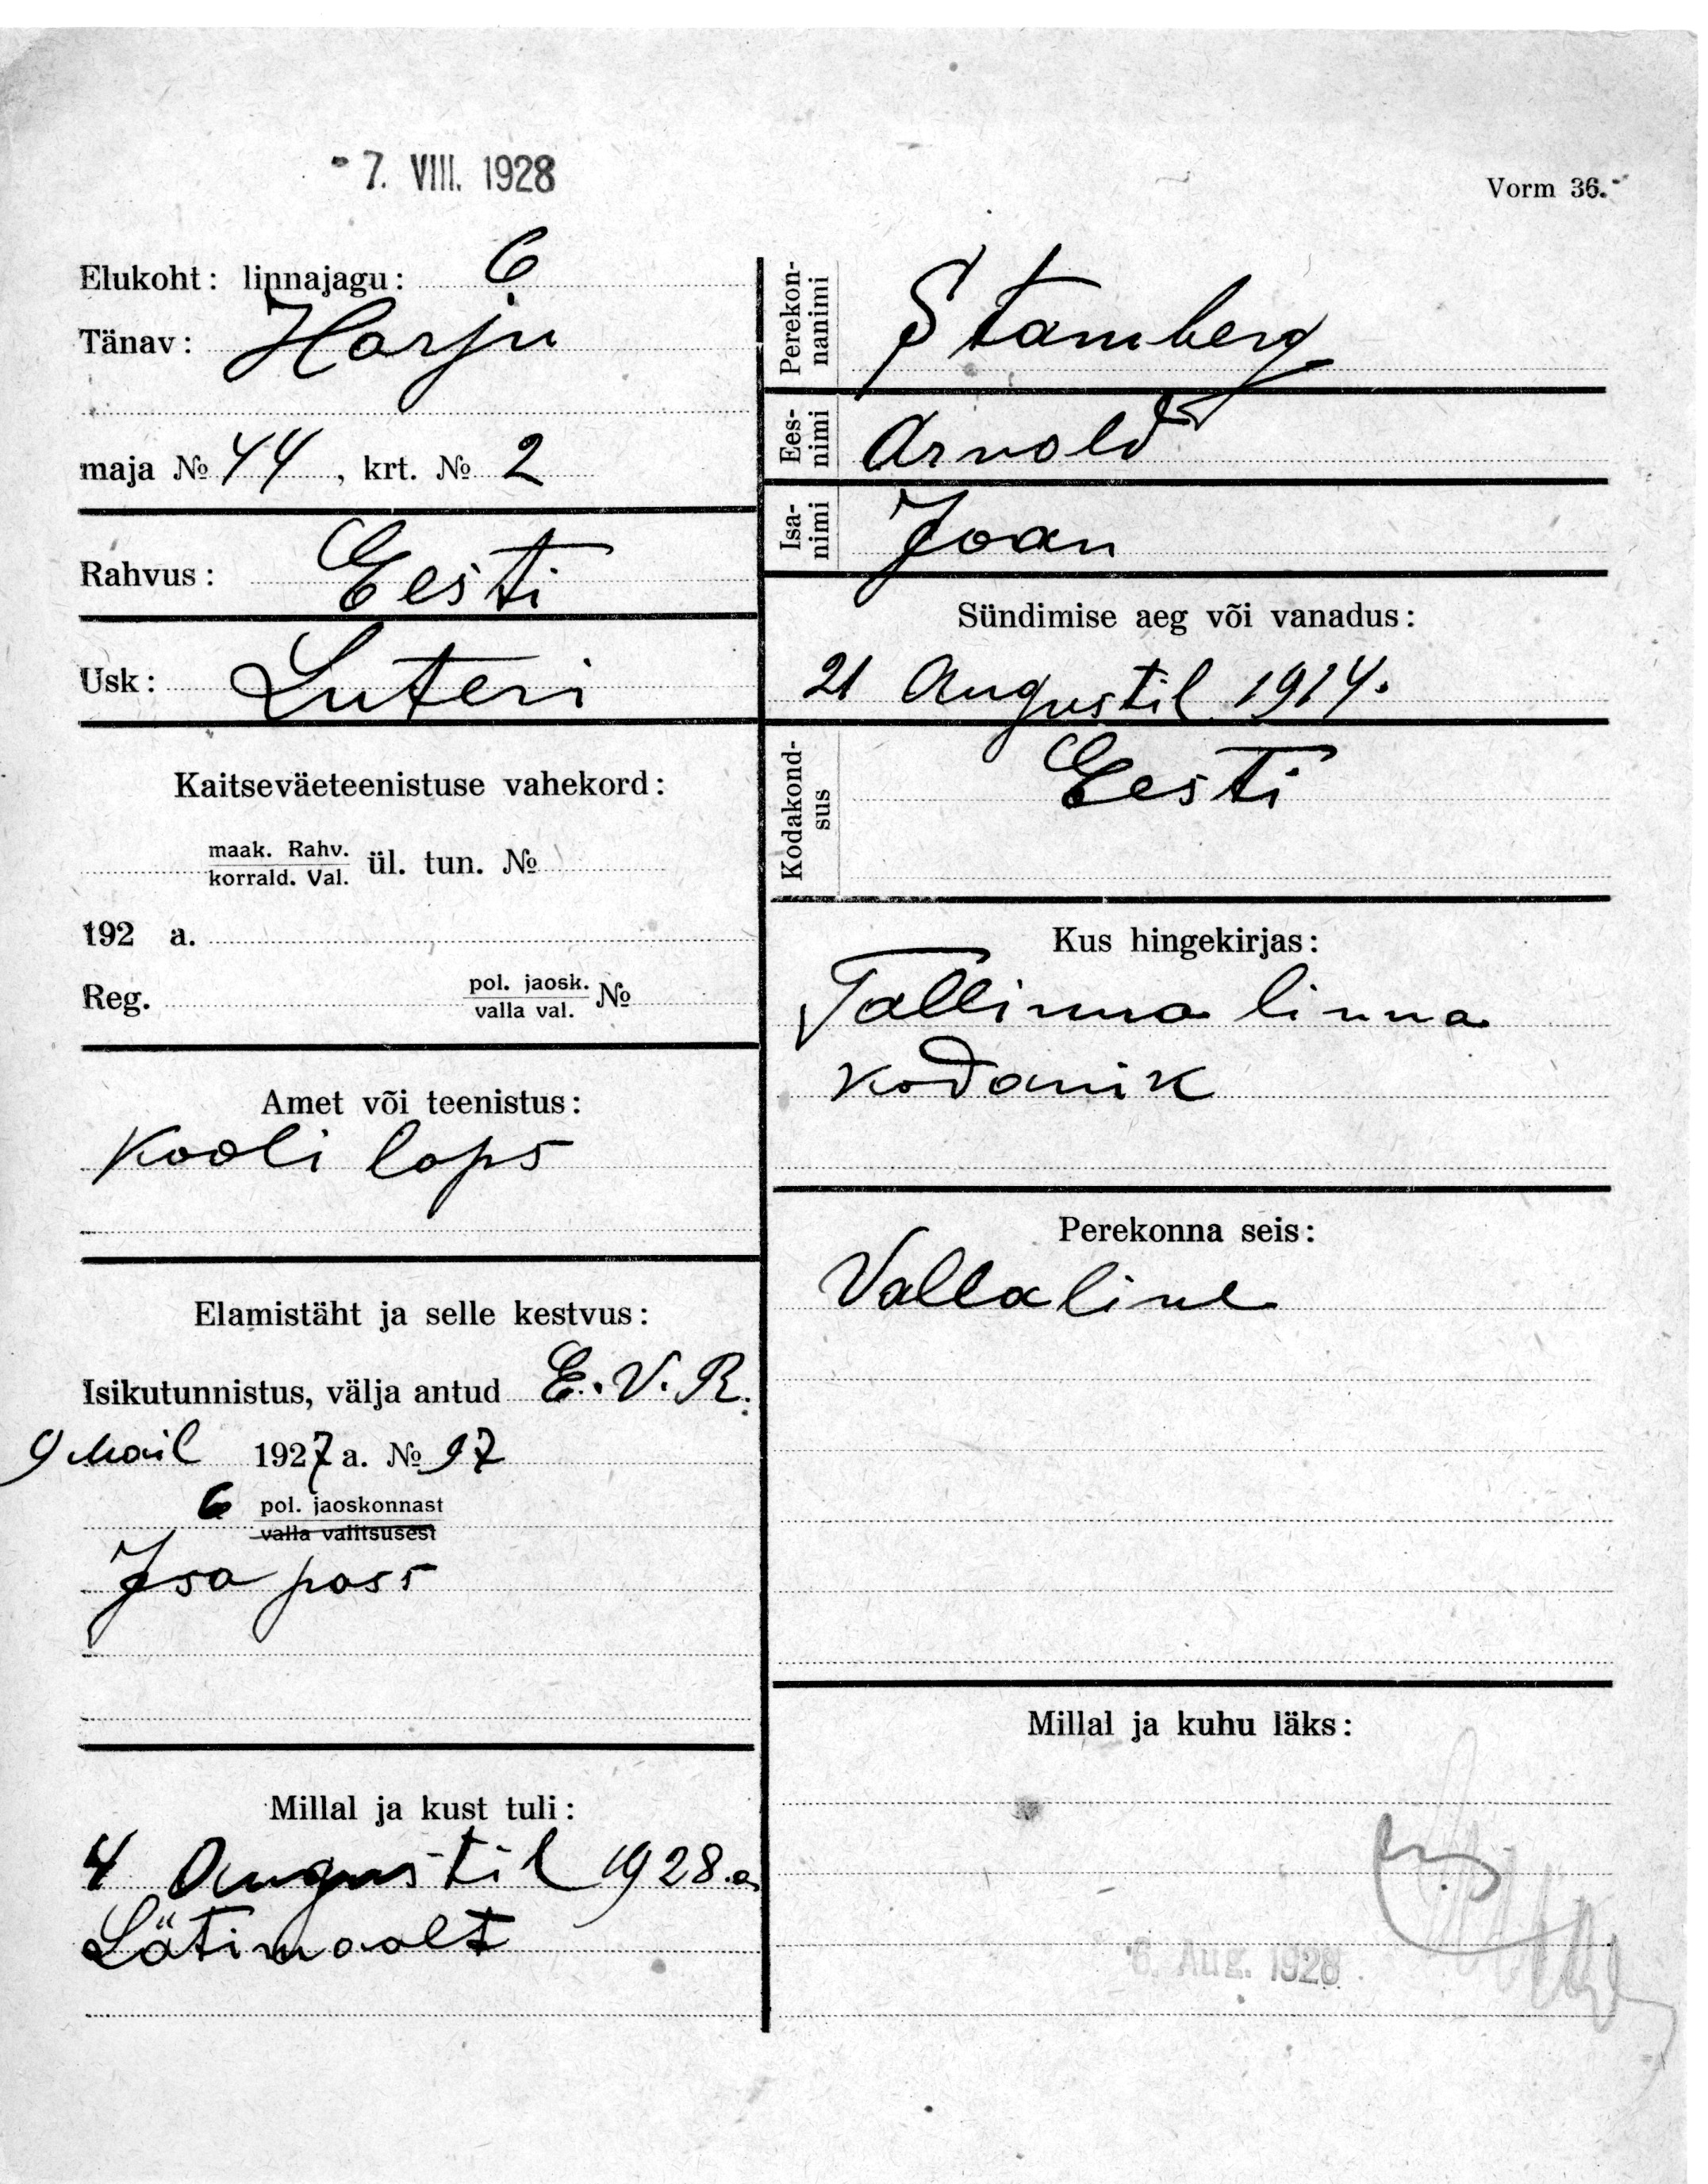 7. VIII. 1928
Vorm 36.
Elukoht: linnajagu: 6
Tänav: Harju
maja № 44, krt. № 2
Rahvus: Eesti
Usk: Luteri
Kaitseväeteenistuse vahekord:
maak. Rahv.
korrald. Val. ül. tun. №
192 a.
Reg. pol. jaosk.
valla val. №
Amet või teenistus:
Kooli laps
Elamistäht ja selle kestvus:
Isikutunnistus, välja antud E.V.R.
9 Mail 1927 a. № 97
6 pol. jaoskonnast
valla valitsusest
Isa pass
Millal ja kust tuli:
4 Augustil 1928.a
Lätimaalt
Perekonnanimi Stamberg
Eesnimi Arnold
Isanimi Joan
Sündimise aeg või vanadus:
21 Augustil 1914.
Kodakondsus Eesti
Kus hingekirjas:
Tallinna linna
kodanik
Perekonna seis:
Vallaline
Millal ja kuhu läks:
6. Aug. 1928